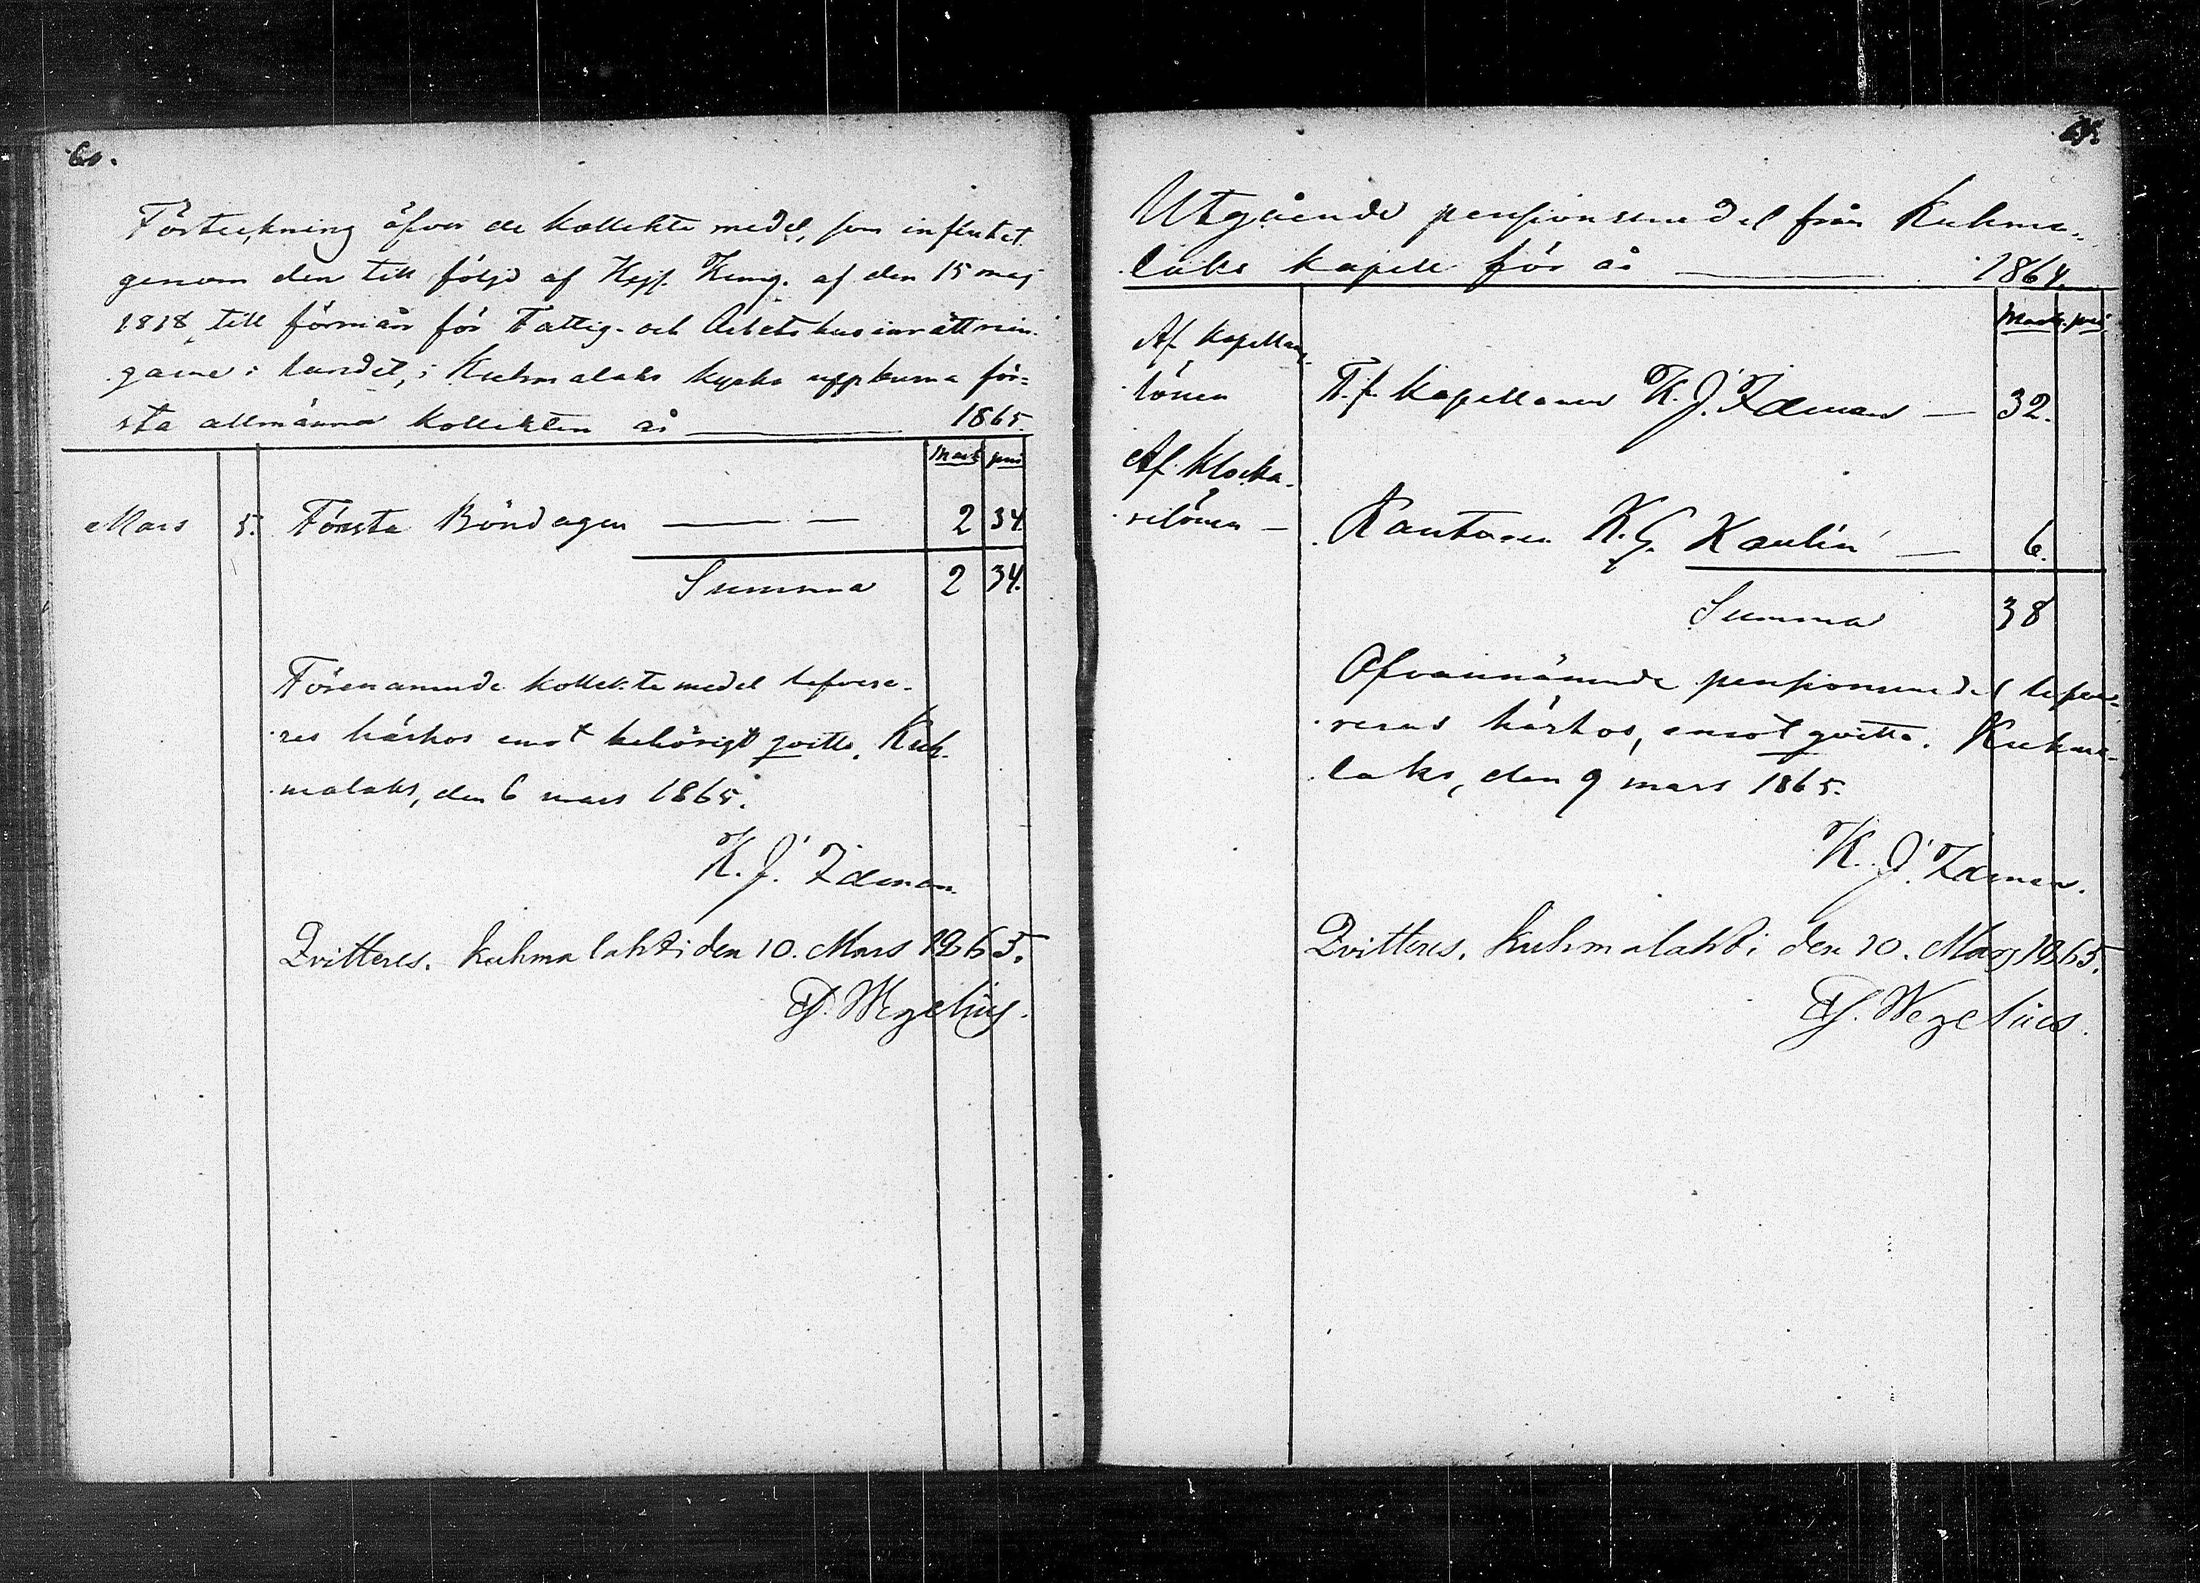 60.
Förteckning öfver de kollekte medel, som influtit
genom den till följe af Kejs. Kung. af den 15 maj
1818 till förmån för Fattig- och Arbetshusinrättnin-
garne i landet, i Kuhmalaks kyrka uppburna för-
sta allmänna kollekten år 1865.
Mark pni
Mars 5. Första Böndagen 2 34
Summa 2 34.
Förenämnde kollektemedel lefvere-
res härhos emot behörigt qvitto. Kuh-
malaks, den 6 mars 1865.
K. J. Idman
Qvitteres. Kuhmalahti den 10. Mars 1865.
Wegelius.
Utgående pensionsmedel från Kuhma-
laks kapell för år 1864.
Mark. pni
Af Kapellans
lönen T. f. Kapellanen K. J. Idman 32.
Af Klocka-
relönen Kantoren K. G. Kaulin 6.
Summa 38
Ofvannämnde pensionsmedel lefve-
reras härhos, emot qvitto. Kuhma-
laks, den 9 mars 1865.
K. J. Idman.
Qvitteres. Kuhmalahti den 10. Mars 1865.
Wegelius.